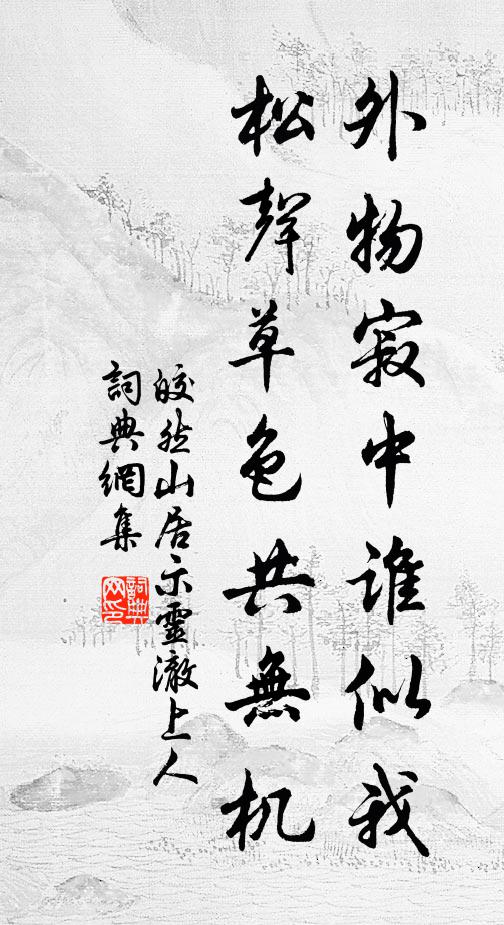 外物寂中誰似我
松聲草色共無机
皎然山居示靈澈上人
詞典網集